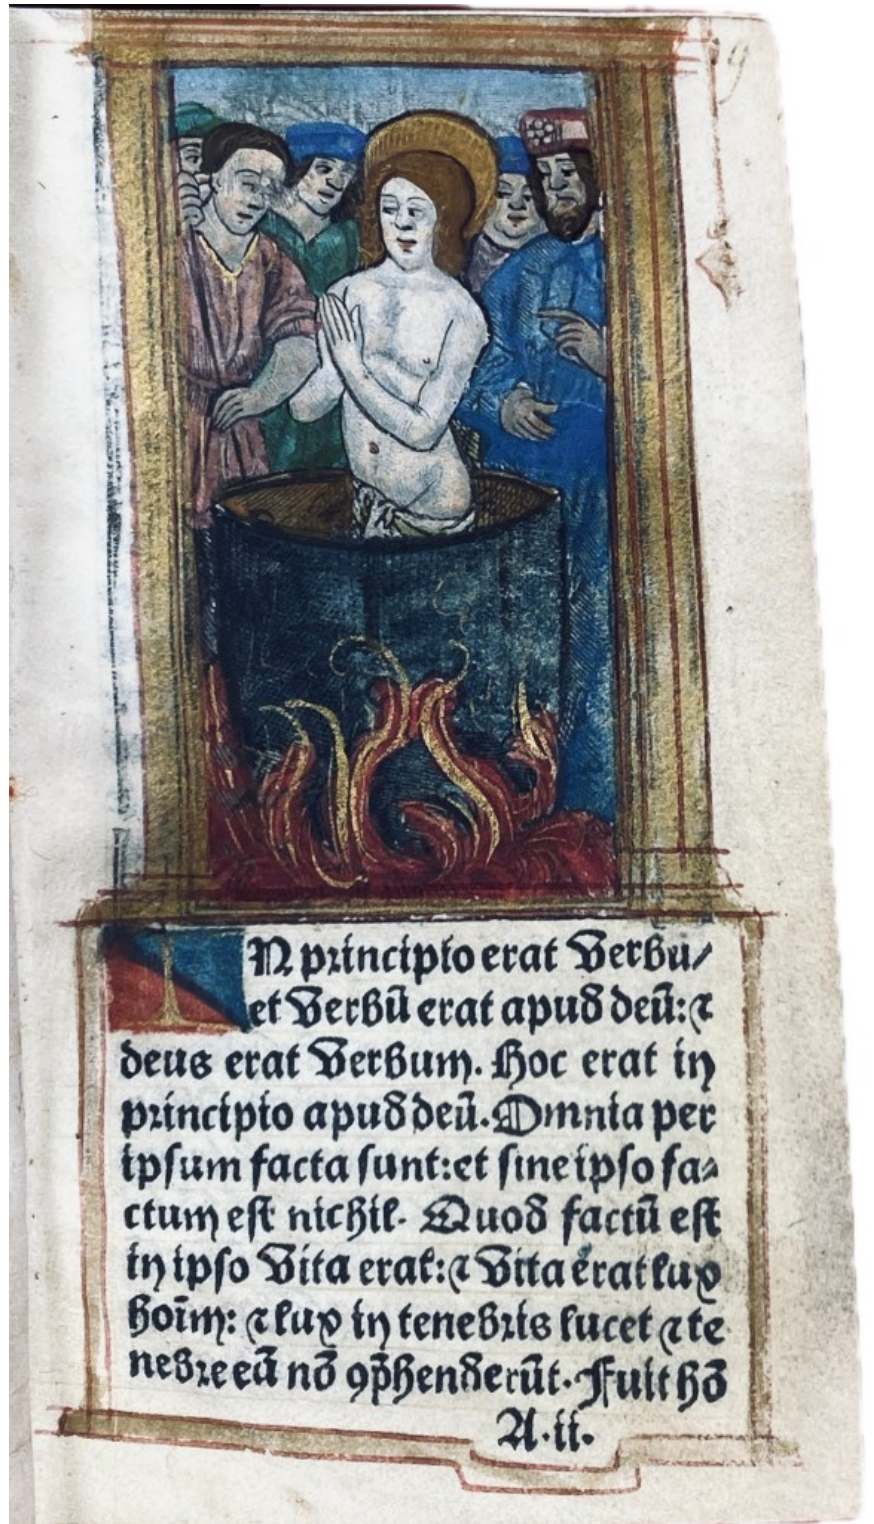 9
IN principio erat Verbu/
et Verbū erat apud deū: ⁊
deus erat Verbum. Hoc erat in
principio apud deū. Omnia per
ipsum facta sunt: et sine ipso fa⸗
ctum est nichil. Quod factū est
in ipso Vita erat: ⁊ Vita erat lux
hoīm: ⁊ lux in tenebris lucet ⁊ te
nebre eā nō ꝯp̄henderūt. Fuit hō
A.ii.